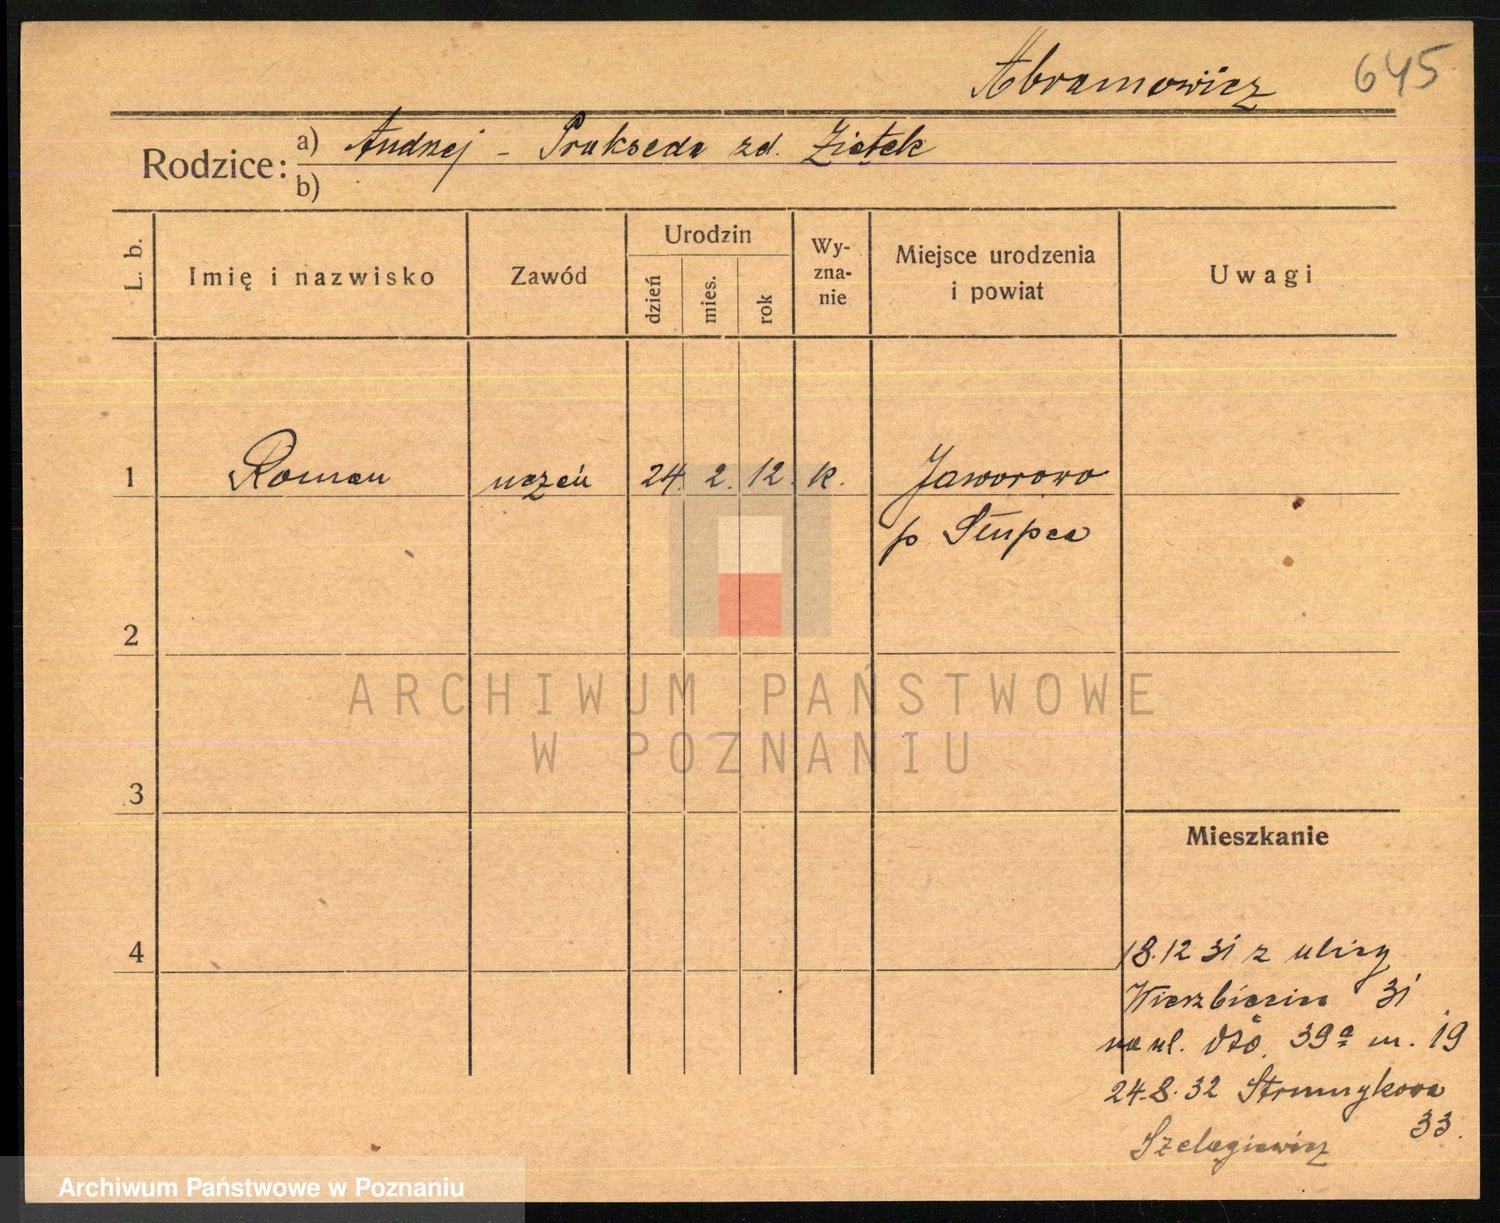 Abramowicz 645
Rodzice: a) Andrzej - Prakseda zd. Ziętek
b)
L. b. Imię i nazwisko Zawód Urodzin dzień mies. rok Wy-zna-nie Miejsce urodzenia i powiat Uwagi
1 Roman uczeń 24. 2. 12. k. Jaworowo
p. Słupca
2
ARCHIWUM PAŃSTWOWE
W POZNANIU
3
Mieszkanie
4
18.12 31 z ulicy
Wierzbięcice 31
na ul. 39a m. 19
24.8.32 Strumykowa
33.
Szelągiewicz
Archiwum Państwowe w Poznaniu